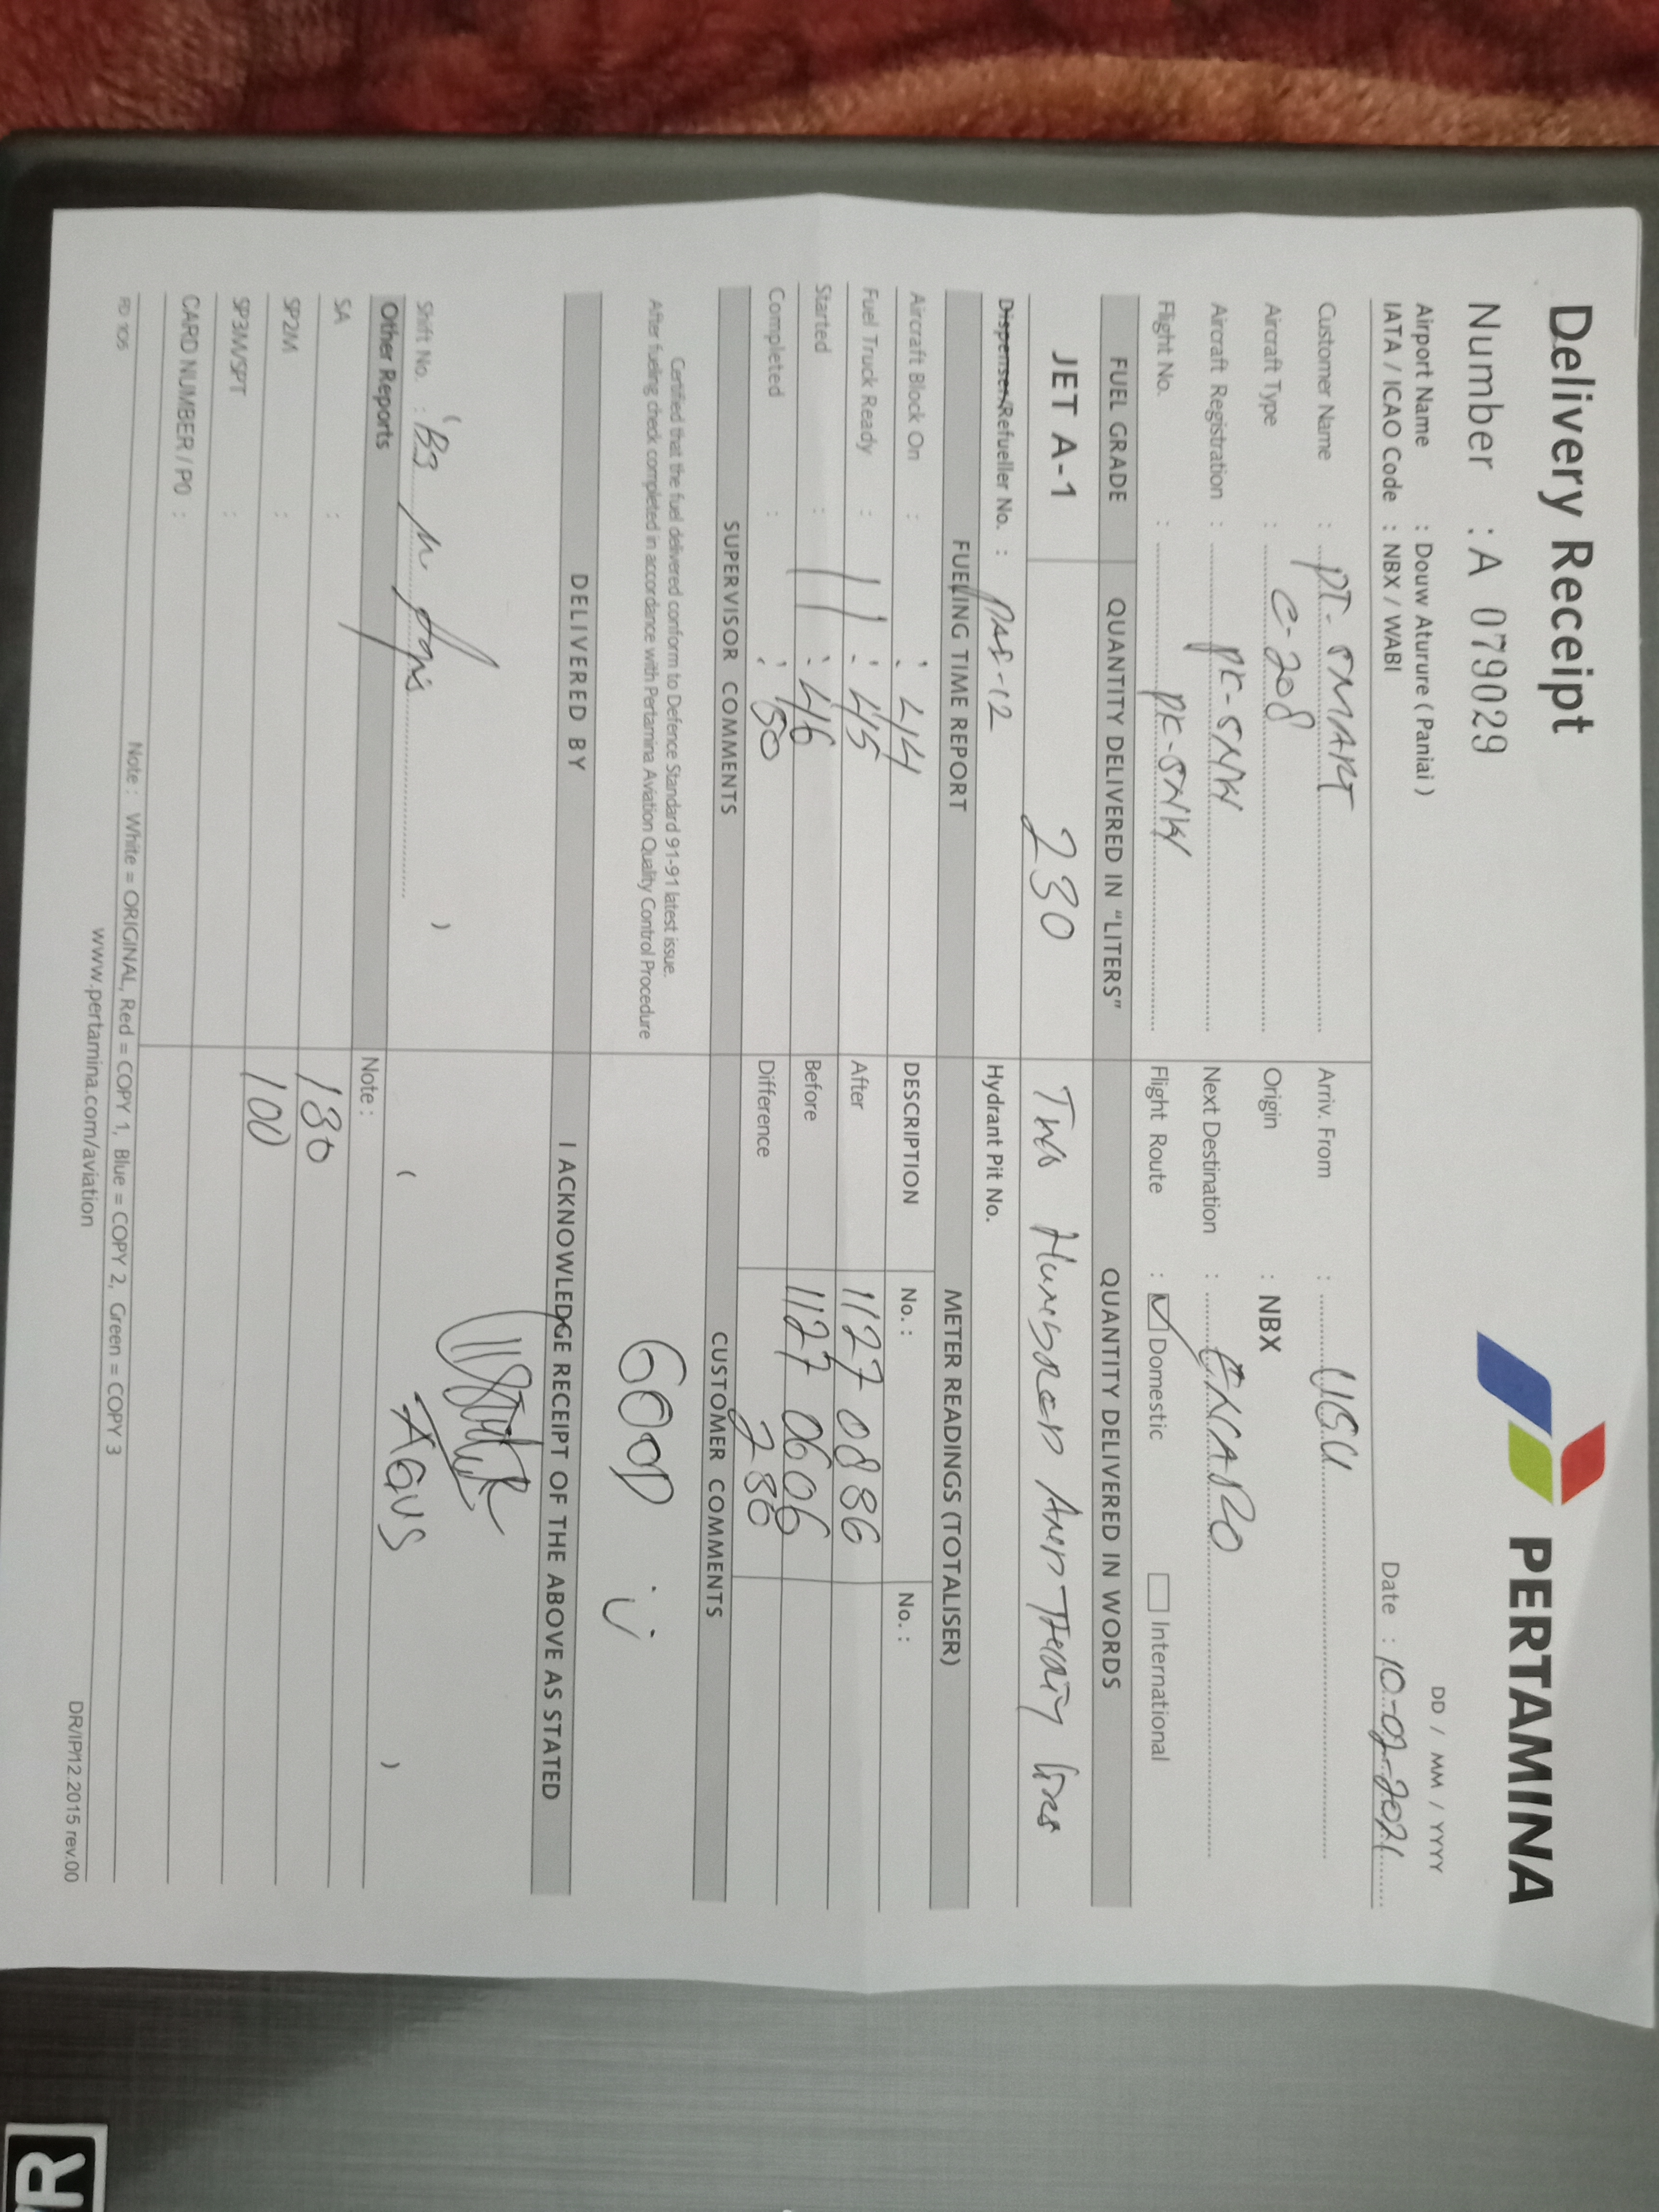 Delivery Receipt
PERTAMINA
Number : A 079029
DD / MM / YYYY
Airport Name : Douw Aturure ( Paniai )
IATA / ICAO Code : NBX / WABI
Date : 10-02-2021
Customer Name : PT. SMART
Arriv. From : UGU
Aircraft Type : C-208
Origin : NBX
Aircraft Registration : PK-SNW
Next Destination :
Flight No. : PK-SNW
Flight Route : Domestic International
FUEL GRADE QUANTITY DELIVERED IN "LITERS" QUANTITY DELIVERED IN WORDS
JET A-1 230 Two
Dispenser/Refueller No. :
Hydrant Pit No.
FUELING TIME REPORT METER READINGS (TOTALISER)
Aircraft Block On : : 44
DESCRIPTION No. : No. :
Fuel Truck Ready : : 45
After 1127 0886
Started : : 46
Before 1127 0606
Completed : : 50
Difference 280
SUPERVISOR COMMENTS CUSTOMER COMMENTS
Certified that the fuel delivered conform to Defence Standard 91-91 latest issue.
After fueling check completed in accordance with Pertamina Aviation Quality Control Procedure
GOOD
DELIVERED BY I ACKNOWLEDGE RECEIPT OF THE ABOVE AS STATED
( )
Shift No. :
( AGUS )
Other Reports
Note :
SA :
180
SP2M :
100
SP3M/SPT :
CARD NUMBER / PO :
FD 105
Note : White = ORIGINAL, Red = COPY 1, Blue = COPY 2, Green = COPY 3
www.pertamina.com/aviation
DR/IP/12.2015 rev.00
R